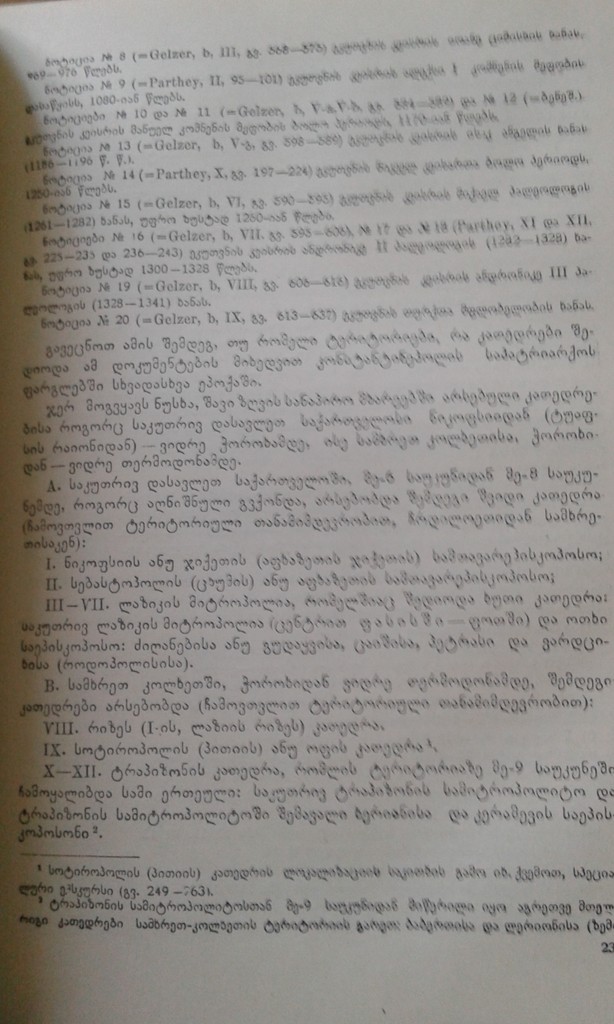 ნოტიცია № 8 (=Gelzer, b, III, გვ. 568—575) ეკუთვნის კეისრის იოანე ციმისხის ხანას,
969—976 წლებს.
ნოტიცია № 9 (=Parthey, II, 95—101) ეკუთვნის კეისრის ალექსი I კომნენის მეფობის
დასაწყისს, 1080-იან წლებს.
ნოტიციები № 10 და № 11 (=Gelzer, b, V-ა, V-ბ, გვ. და № 12 (=ბენეშ.)
ეკუთვნის კეისრის მანუელ კომნენის მეფობის ბოლო პერიოდს, 1170-იან წლებს.
ნოტიცია № 13 (=Gelzer, b, V-გ, გვ. 598—589) ეკუთვნის კეისრის ისაკ ანგელის ხანას
(1186—1196 წ. წ.).
ნოტიცია № 14 (=Parthey, X, გვ. 197—224) ეკუთვნის ნიკეელ კეისართა ბოლო პერიოდს,
1250-იან წლებს.
ნოტიცია № 15 (=Gelzer, b, VI, გვ. 590—595) ეკუთვნის კეისრის მიქაელ პალეოლოგის
(1261—1282) ხანას, უფრო ზუსტად 1260-იან წლებს.
ნოტიციები № 16 (=Gelzer, b, VII, გვ. 595—605), № 17 და № 18 (Parthey, XI და XII,
გვ. 225—235 და 236—243) ეკუთვნის კეისრის ანდრონიკე II პალეოლოგის (1282—1328) ხა-
ნას, უფრო ზუსტად 1300—1328 წლებს.
ნოტიცია № 19 (=Gelzer, b, VIII, გვ. 608—613) ეკუთვნის კეისრის ანდრონიკე III პა-
ლეოლოგის (1328—1341) ხანას.
ნოტიცია № 20 (=Gelzer, b, IX, გვ. 613—637) ეკუთვნის თურქთა მფლობელობის ხანას.
გავეცნოთ ამის შემდეგ, თუ რომელი ტერიტორიები, რა კათედრები შე-
დიოდა ამ დოკუმენტების მიხედვით კონსტანტინეპოლის საპატრიარქოს
ფარგლებში სხვადასხვა ეპოქაში.
ჯერ მოგვყავს ნუსხა, შავი ზღვის სანაპირო მხარეებში არსებული კათედრე-
ბისა როგორც საკუთრივ დასავლეთ საქართველოსი ნიკოფსიიდან (ტუაფ-
სის რაიონიდან) — ვიდრე ჭოროხამდე, ისე სამხრეთ კოლხეთისა, ჭოროხი-
დან — ვიდრე თერმოდონამდე.
A. საკუთრივ დასავლეთ საქართველოში, მე-6 საუკუნიდან მე-8 საუკუ-
ნემდე, როგორც აღნიშნული გვქონდა, არსებობდა შემდეგი შვიდი კათედრა
(ჩამოვთვლით ტერიტორიული თანამიმდევრობით, ჩრდილოეთიდან სამხრე-
თისაკენ):
I. ნიკოფსიის ანუ ჯიქეთის (აფხაზეთის ჯიქეთის) სამთავარეპისკოპოსო;
II. სებასტოპოლის (ცხუმის) ანუ აფხაზეთის სამთავარეპისკოპოსო;
III—VII. ლაზიკის მიტროპოლია, რომელშიაც შედიოდა ხუთი კათედრა:
საკუთრივ ლაზიკის მიტროპოლია (ცენტრით ფასისში — ფოთში) და ოთხი
საეპისკოპოსო: ძიღანებისა ანუ გუდაყვისა, ცაიშისა, პეტრასი და ვარდცი-
ხისა (როდოპოლისისა).
B. სამხრეთ კოლხეთში, ჭოროხიდან ვიდრე თერმოდონამდე, შემდეგი
კათედრები არსებობდა (ჩამოვთვლით ტერიტორიული თანამიმდევრობით):
VIII. რიზეს (I-ის, ლაზიის რიზეს) კათედრა.
IX. სოტიროპოლის (პითიის) ანუ ოფის კათედრა ¹.
X—XII. ტრაპიზონის კათედრა, რომლის ტერიტორიაზე მე-9 საუკუნეში
ჩამოყალიბდა სამი ერთეული: საკუთრივ ტრაპიზონის სამიტროპოლიტო და
ტრაპიზონის სამიტროპოლიტოში შემავალი ხერიანისა და კერამევის საეპის-
კოპოსონი ².
¹ სოტიროპოლის (პითიის) კათედრის ლოკალიზაციის საკითხის გამო იხ. ქვემოთ, სპეცია-
ლური ექსკურსი (გვ. 249—263).
² ტრაპიზონის სამიტროპოლიტოსთან მე-9 საუკუნიდან მიწერილი იყო აგრეთვე მთელ
რიგი კათედრები სამხრეთ-კოლხეთის ტერიტორიის გარეთ: პაპერთისა და ლერიონისა (ზემო
23